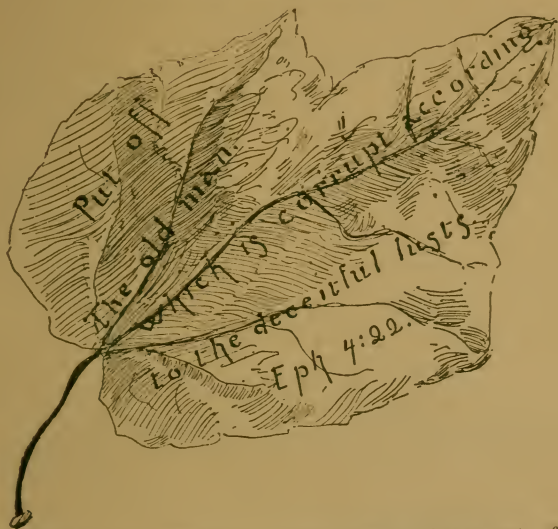 Put off
The old man.
which is corrupt according
to the deceitful lusts
Eph 4:22.